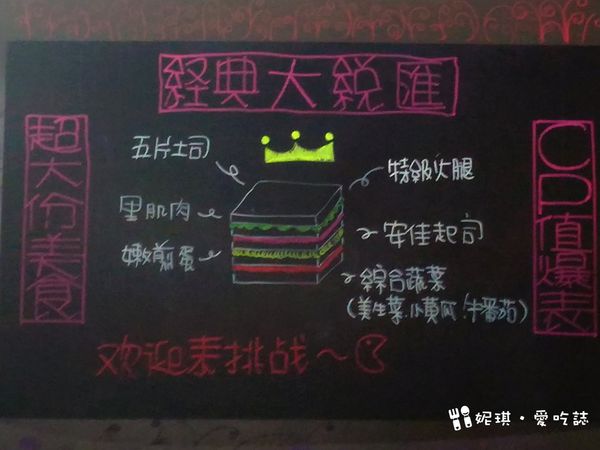 經典大統匯
超大份美食
CP值爆表
五片土司
特級火腿
里肌肉
安佳起司
嫩煎蛋
綜合蔬菜
(美生菜.小黃瓜/牛番茄)
欢迎来挑战~
妮琪・愛吃誌